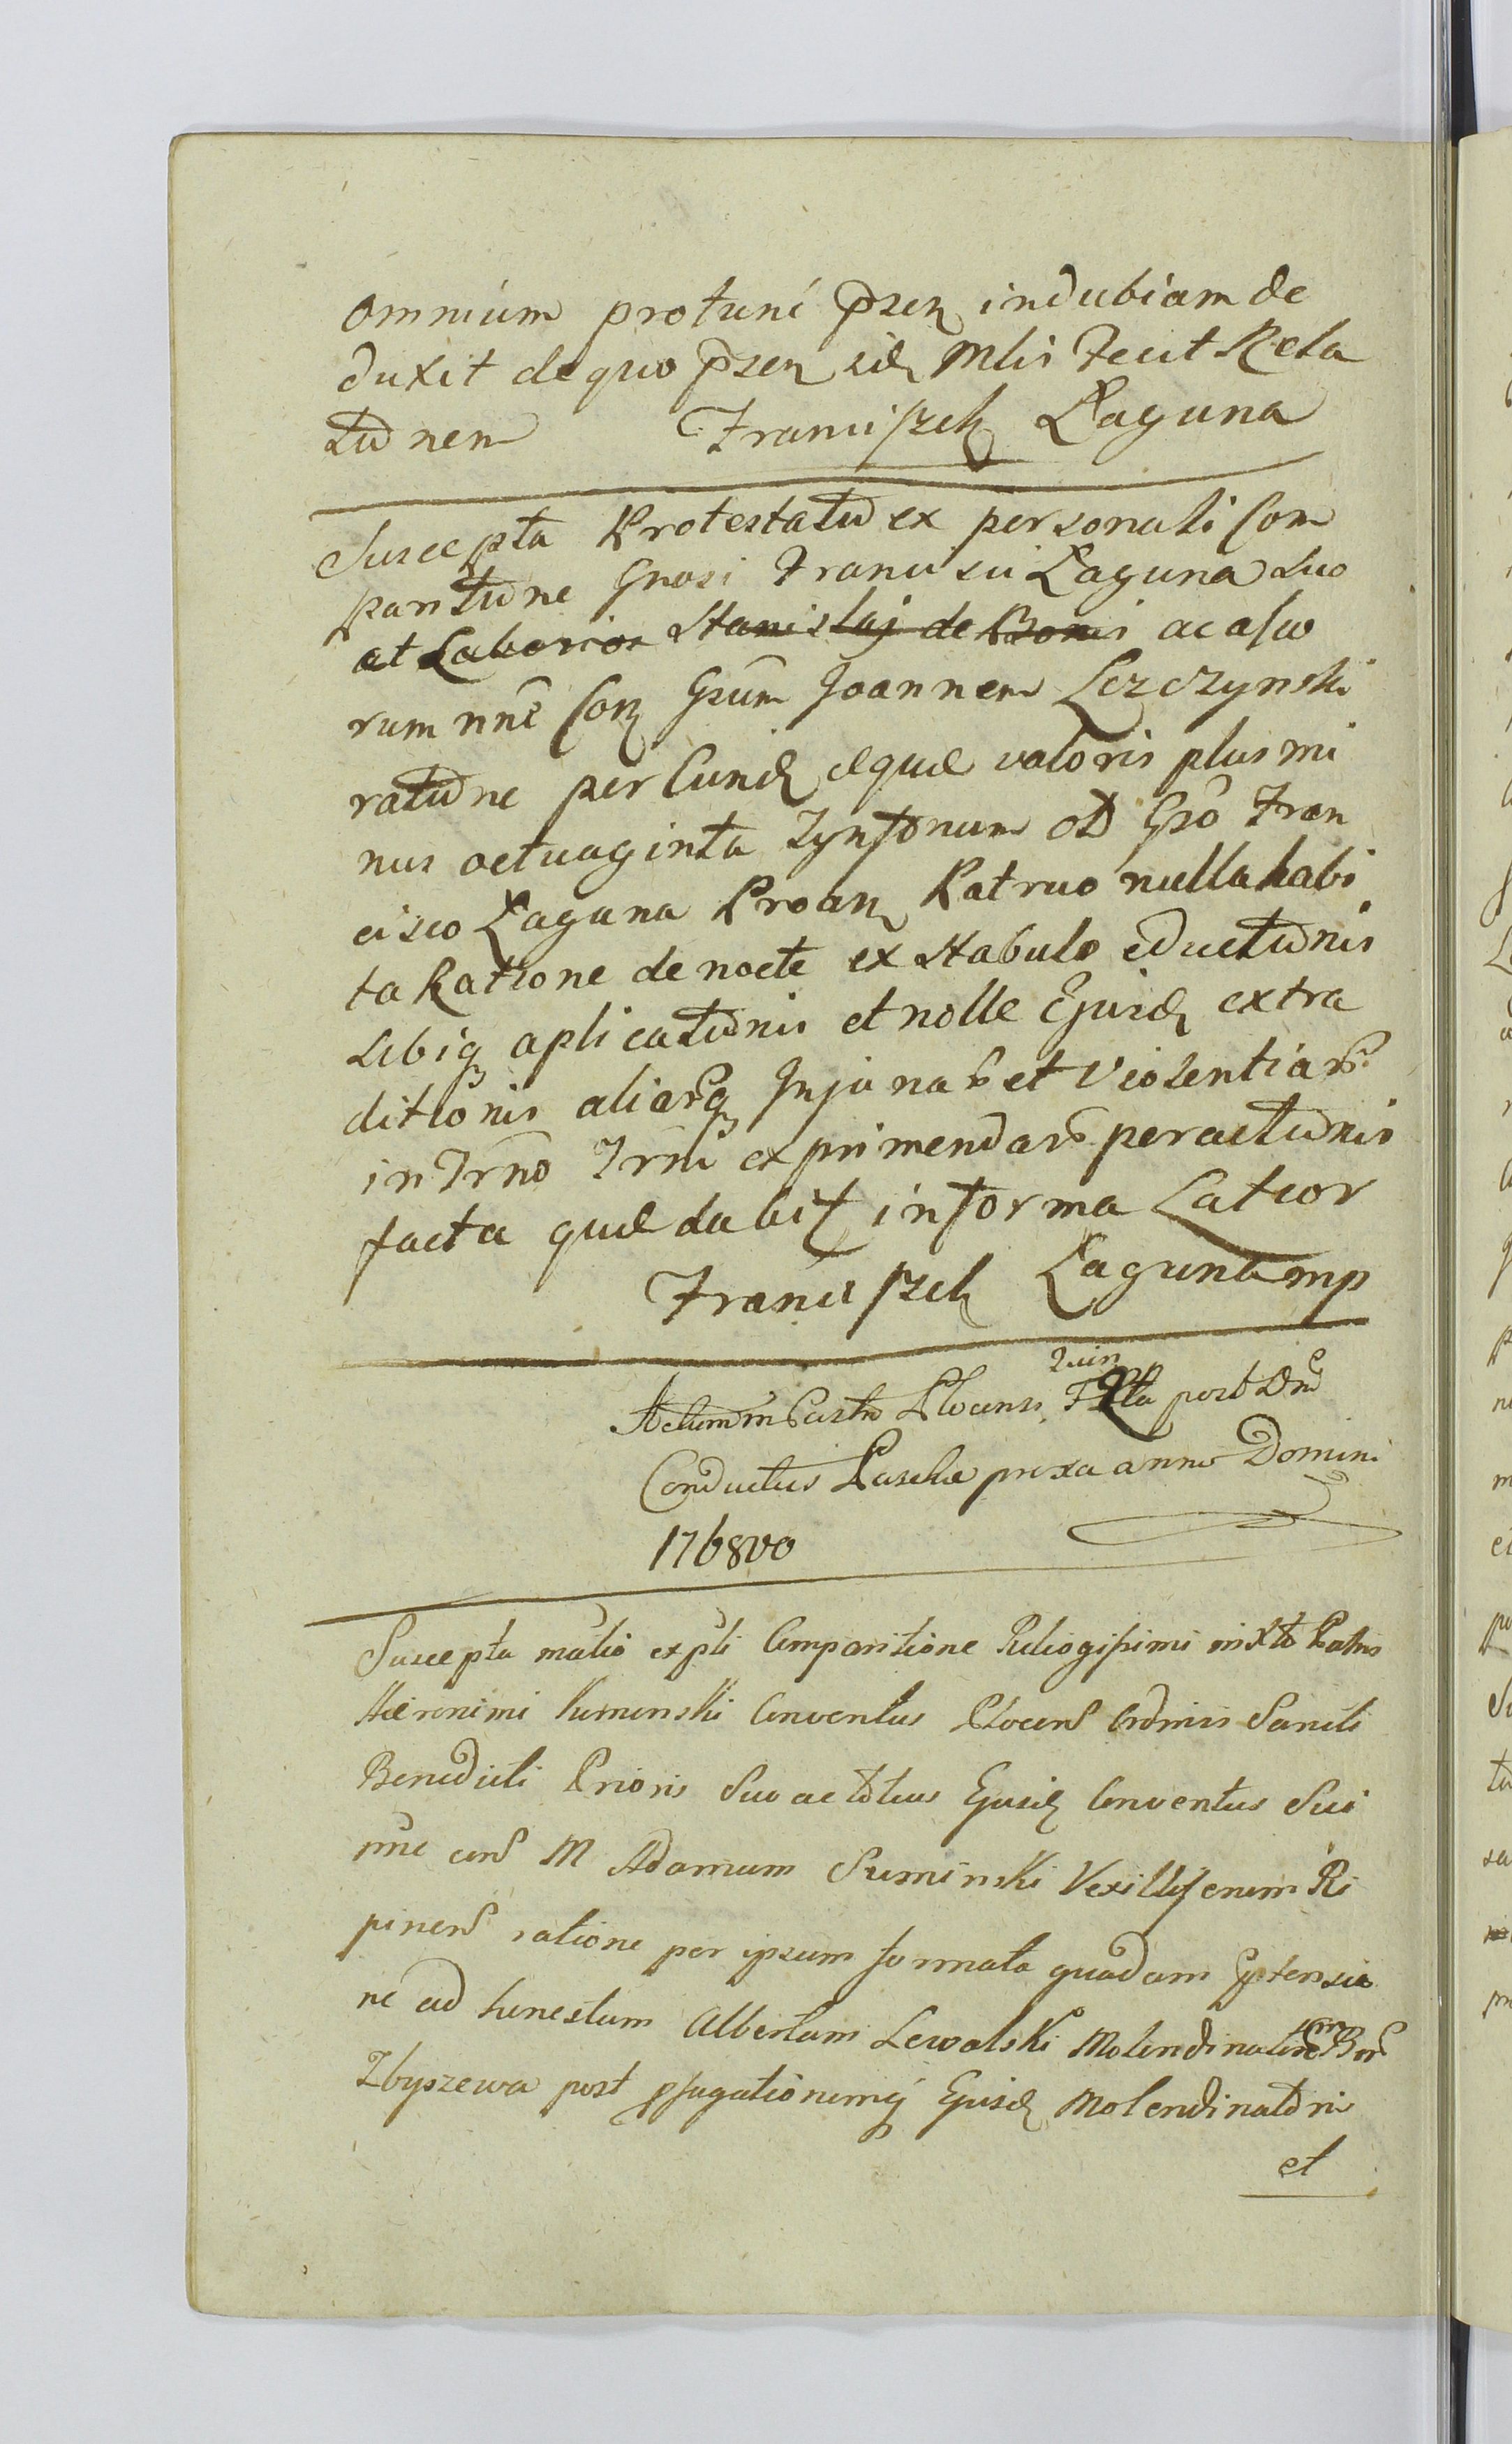 omnium protuni p̄sen indubiam de
duxit de quo p̄sen sid Mlis Fecit Rela
tionem Franciszek Łaguna
Suscepta Protestatio ex personali Com
paritione Gnosi Francisci Łaguna Suo
at Laborios Stanislaj de Bonis ac aliorum
rum nne con Gsum Joannem Lezczynski
ratione per Eund eque valoris plus mi
nus octuaginta Tynfonum od Gso Fran
cisco Łaguna Proan Patruo nulla habi
ta Ratione de nocte ex Stabulo eductionis
Sibiq aplicationis et nolle Ejusd extra
ditionis aliarq Injuriar et Violentiar
in Trno Trni exprimendar peractionis
facta que dabit in forma Latior
Franciszek Łaguna mp
Actum in Castro Plocensi F Quinta post Dnm
Conductus Paschae proxa anno Domini
1768vo
Suscepta matio ex pli Comparitione Religiosissimi Patris
Hieronimi Kuminski Conventus Plocens Ordinis Sancti
Benedicti Prioris Suo ac totius Ejusd Conventus Sui
nne cons M Adamum Suminski Vexilliferum Ri
pinens ratione per ipsum formata quadam Prætensio
ne ad honestum Albertum Lewalski Molendinatorem Bon
Zbyszewa post profugationemq Ejusd Molendinatoris
et